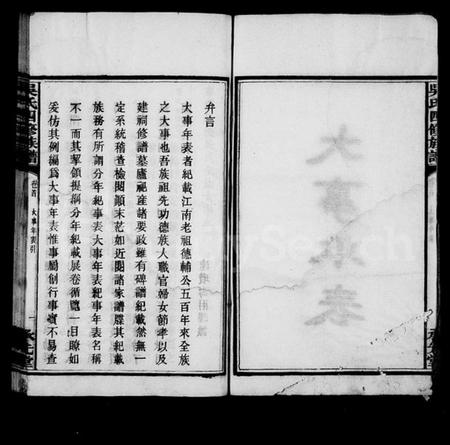 弁言
大事年表者紀載江南老祖德輔公五百年來全族
之大事也吾族祖先功德族人職官婦女節孝以及
建祠修譜墓廬祀產諸要政雖有碑譜紀載然無一
定系統稽查檢閱顛末茫如近閱諸家譜牒其紀載
族務有所謂分年紀事表大事年表紀事年表名稱
不一而其挈領提綱分年紀載展卷循覽一目瞭如
爰仿其例編為大事年表惟事屬創行事實不易查
吳氏四修族譜
卷首
大事年表引
一
吳氏四修族譜
大事年表